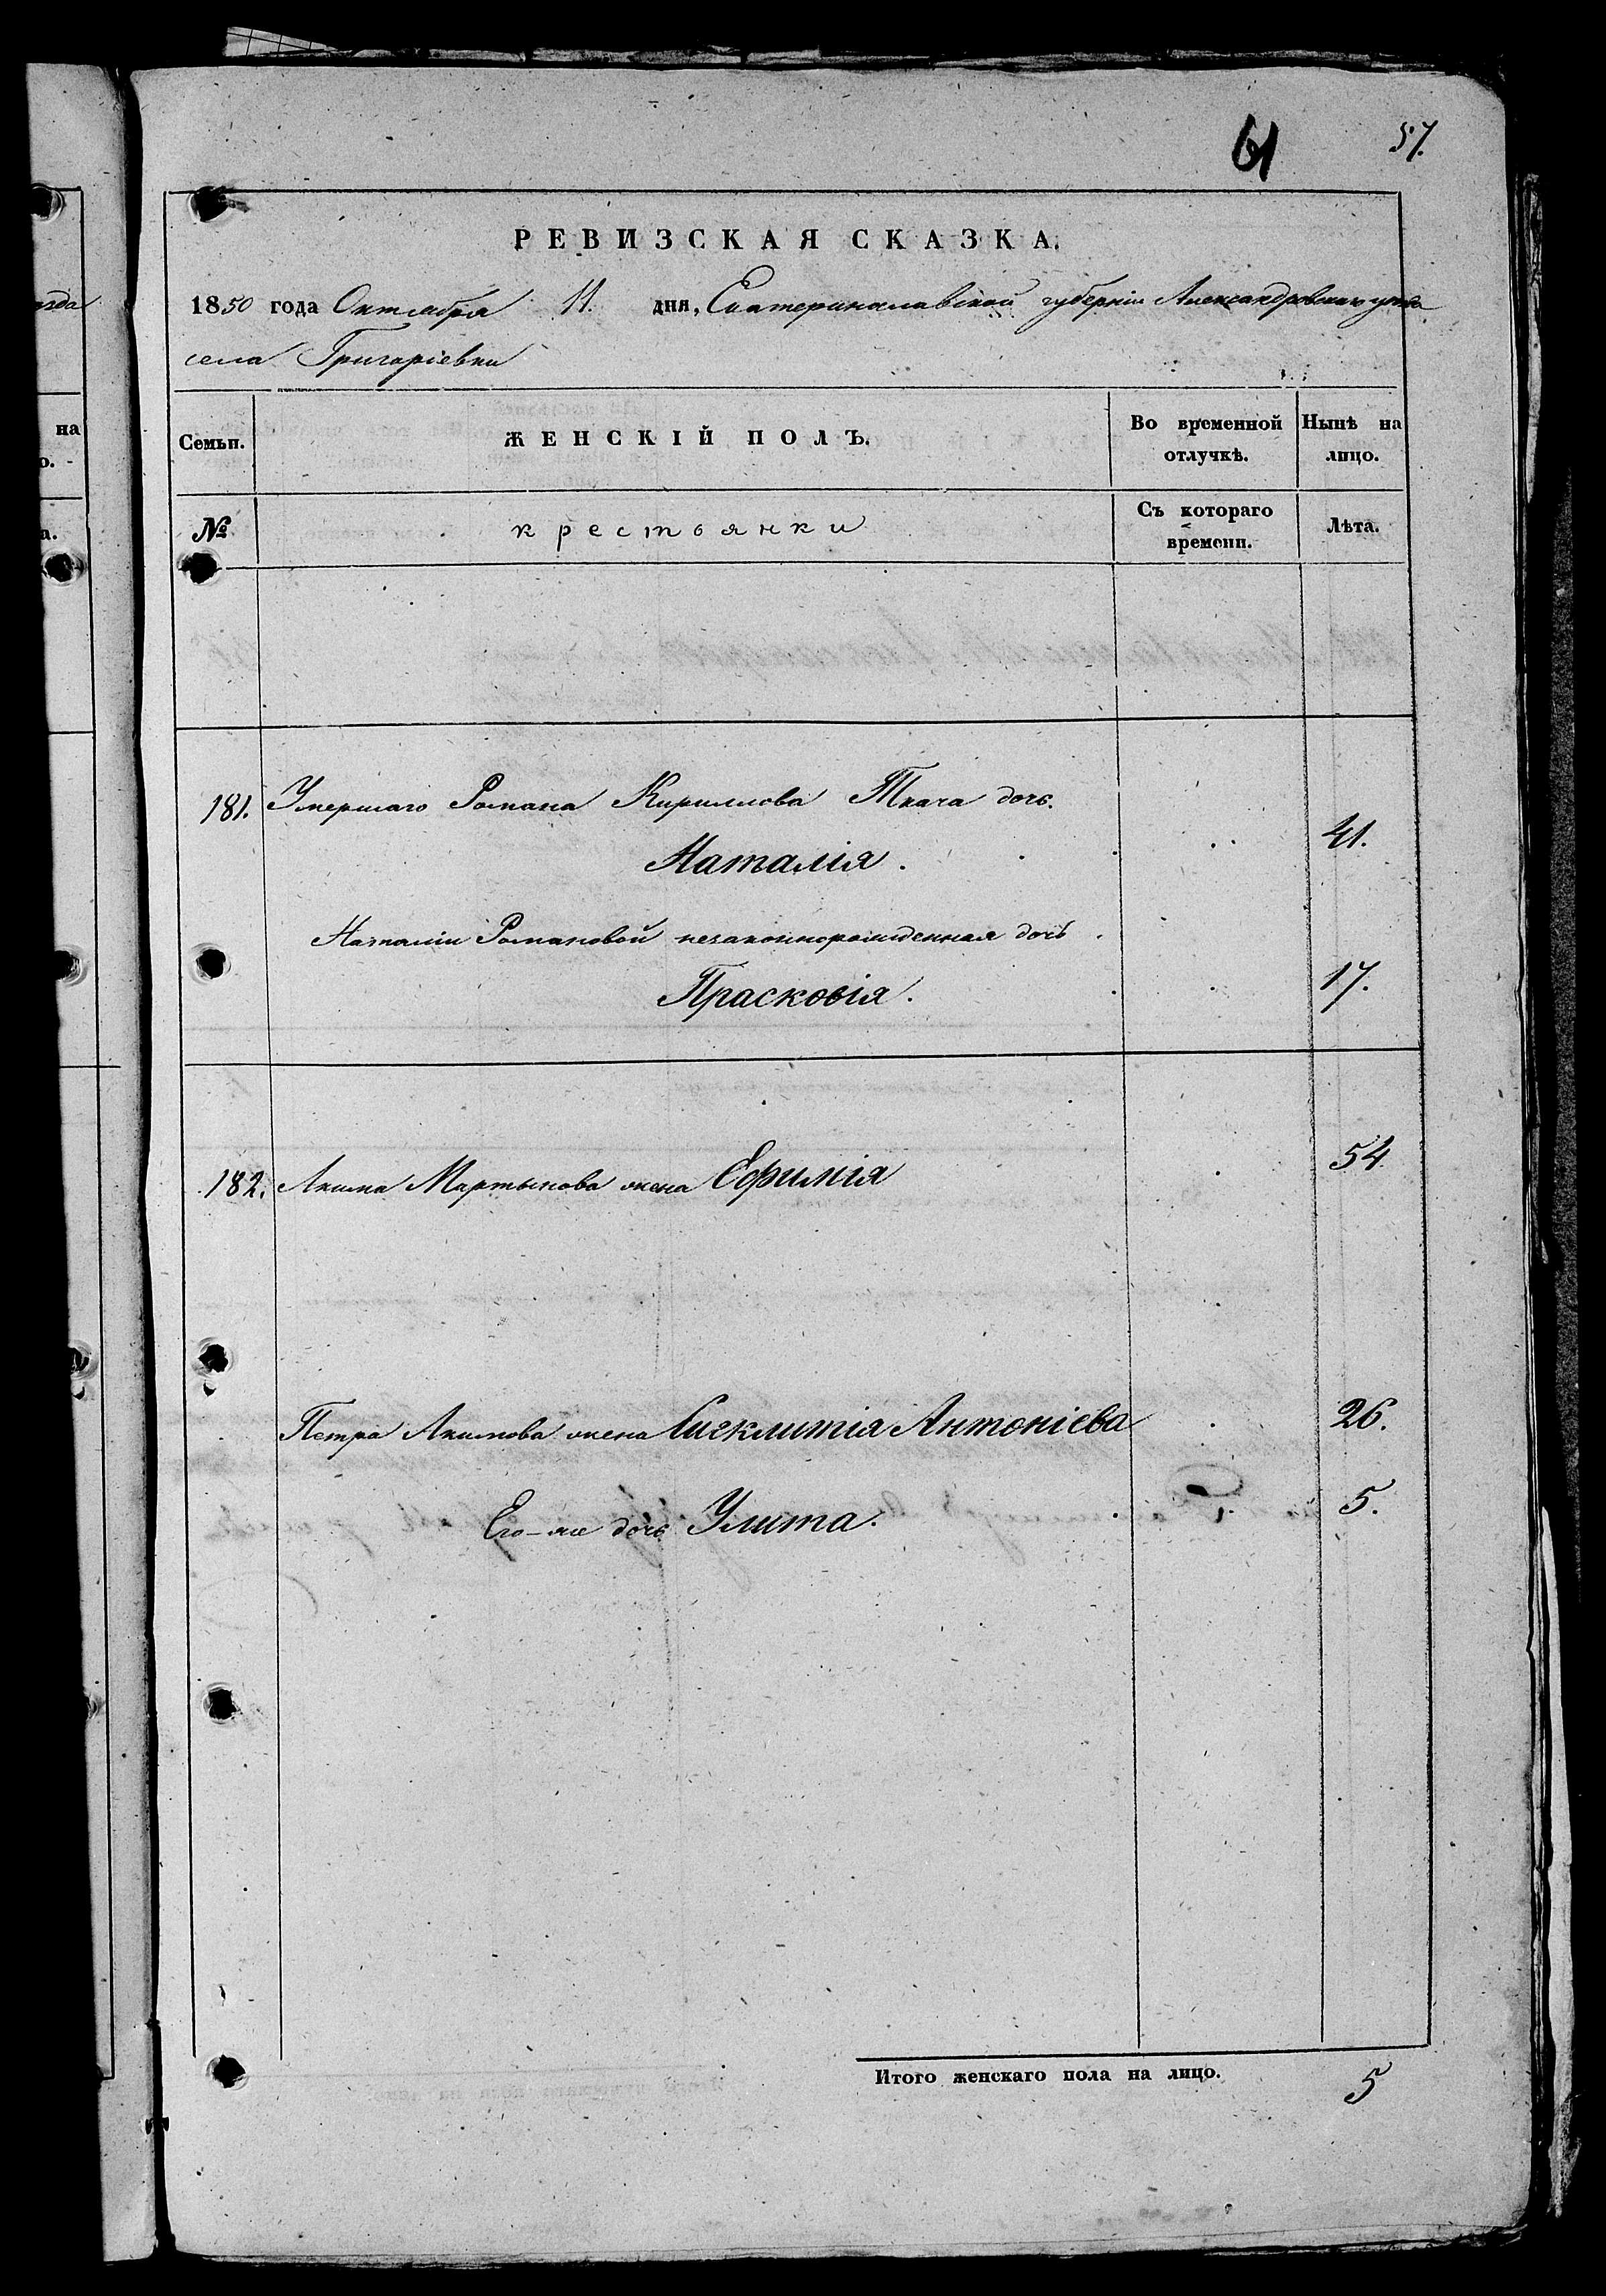 61 57.
РЕВИЗСКАЯ СКАЗКА.
1850 года Октября 11. дня, Екатеринославской губерніи Александровскаго уезда
села Григоріевки
Семьи. ЖЕНСКІЙ ПОЛЪ. Во временной отлучкѣ. Нынѣ на лицо.
№ крестьянки Съ котораго времени. Лѣта.
181. Умершаго Романа Кириллова Ткача дочь.
Наталія. 41.
Наталіи Романовой незаконнорожденная дочь.
Прасковія. 17.
182. Акима Мартынова жена Ефимія 54
Петра Акимова жена Сигклитія Антоніева 26.
Его-же дочь Улита. 5.
Итого женскаго пола на лицо. 5